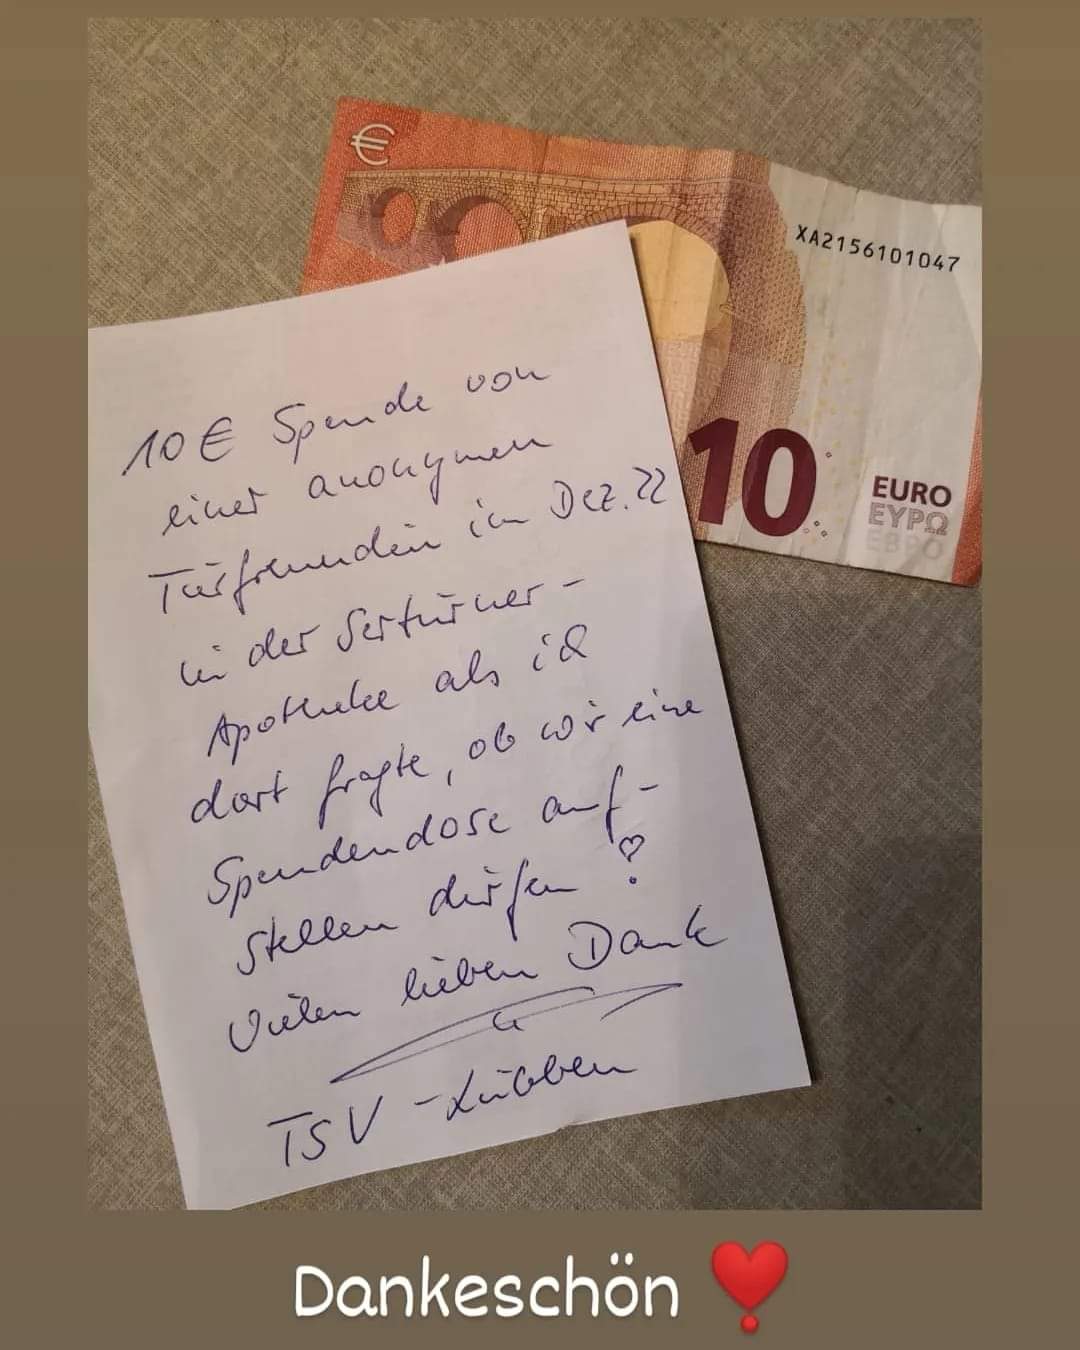 €
XA2156101047
10
EURO
ΕΥΡΩ
ЕВРО
10 € Spende von
einer anonymen
Tierfreundin im Dez. 22
in der Sertürner-
Apotheke als ich
dort fragte, ob wir eine
Spendendose auf-
stellen dürfen
Vielen lieben Dank
TSV - Lübben
Dankeschön ❣️